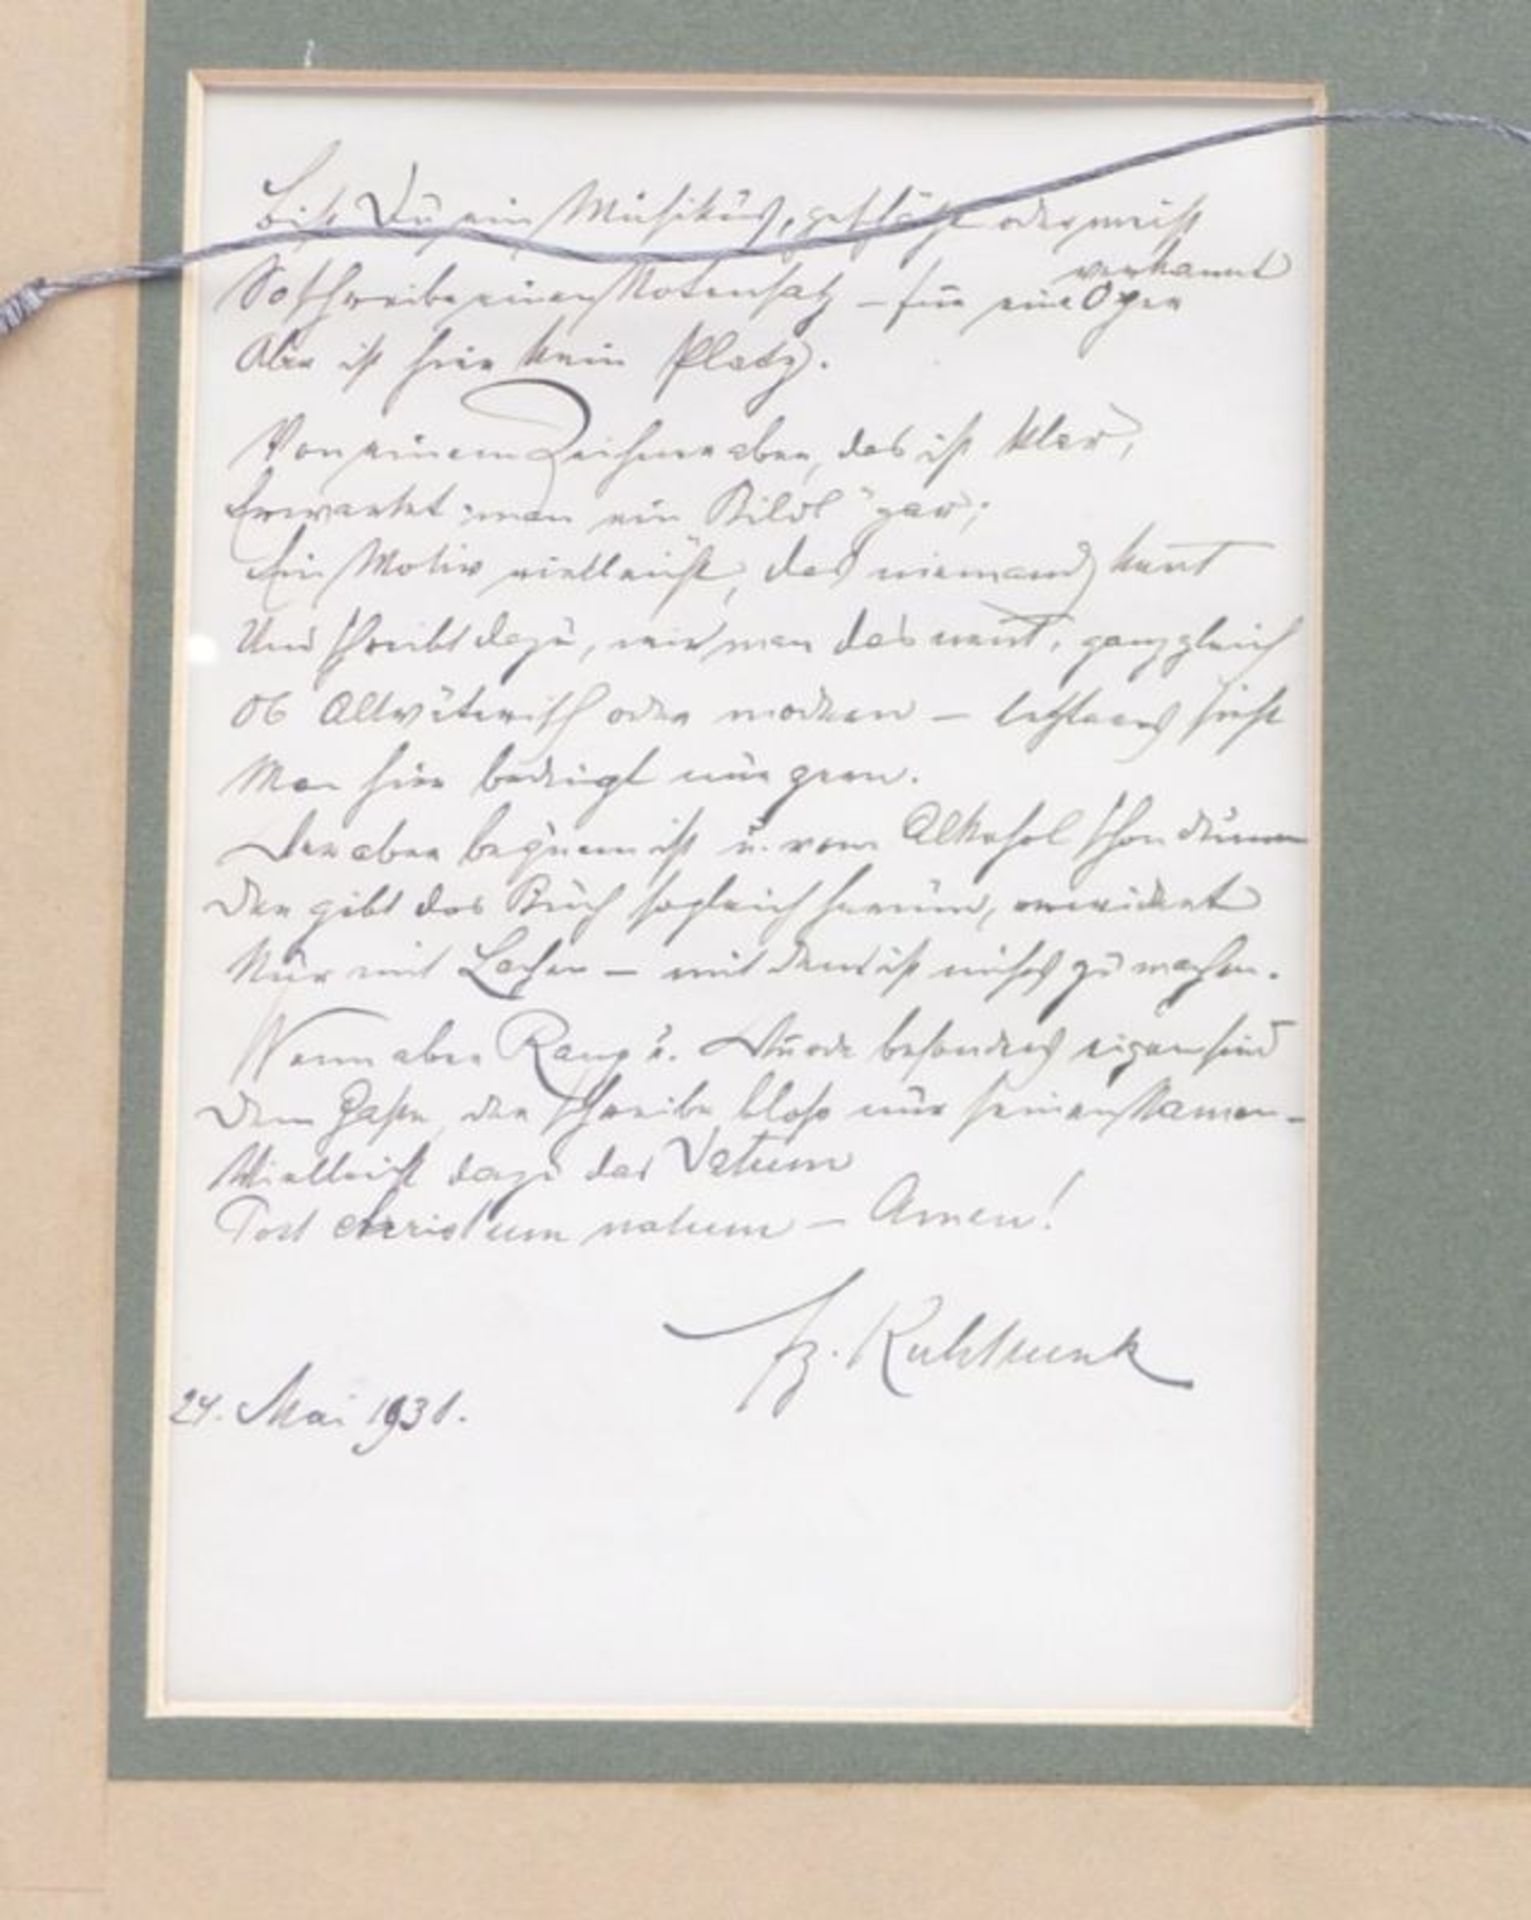 Bist Du ein Musikus, geschätzt oder meist
verkannt
So schreibe einen Notensatz – für eine Oper
Aber ist hier kein Platz.
Von einem Zeichner aber, das ist klar,
Erwartet man ein Bildl gar;
Ein Motiv vielleicht, das niemand kent
Und schreibt dazu, wie man das nent, ganz gleich
Ob Altväterisch oder modern – letzteres sieht
Man hier bedingt nur gern.
Der aber bequem ist u. vom Alkohol schon dumm
Der gibt das Buch sogleich herum,
Nur mit Lachen – mit dem ist nichts zu machen.
Wenn aber Rang u. Würde besonders eigen sind
Dem Gaste, der schreibe bloss nur seinen Namen –
Vielleicht dazu das Datum
Post Christum natum – Amen!
24. Mai 1931.